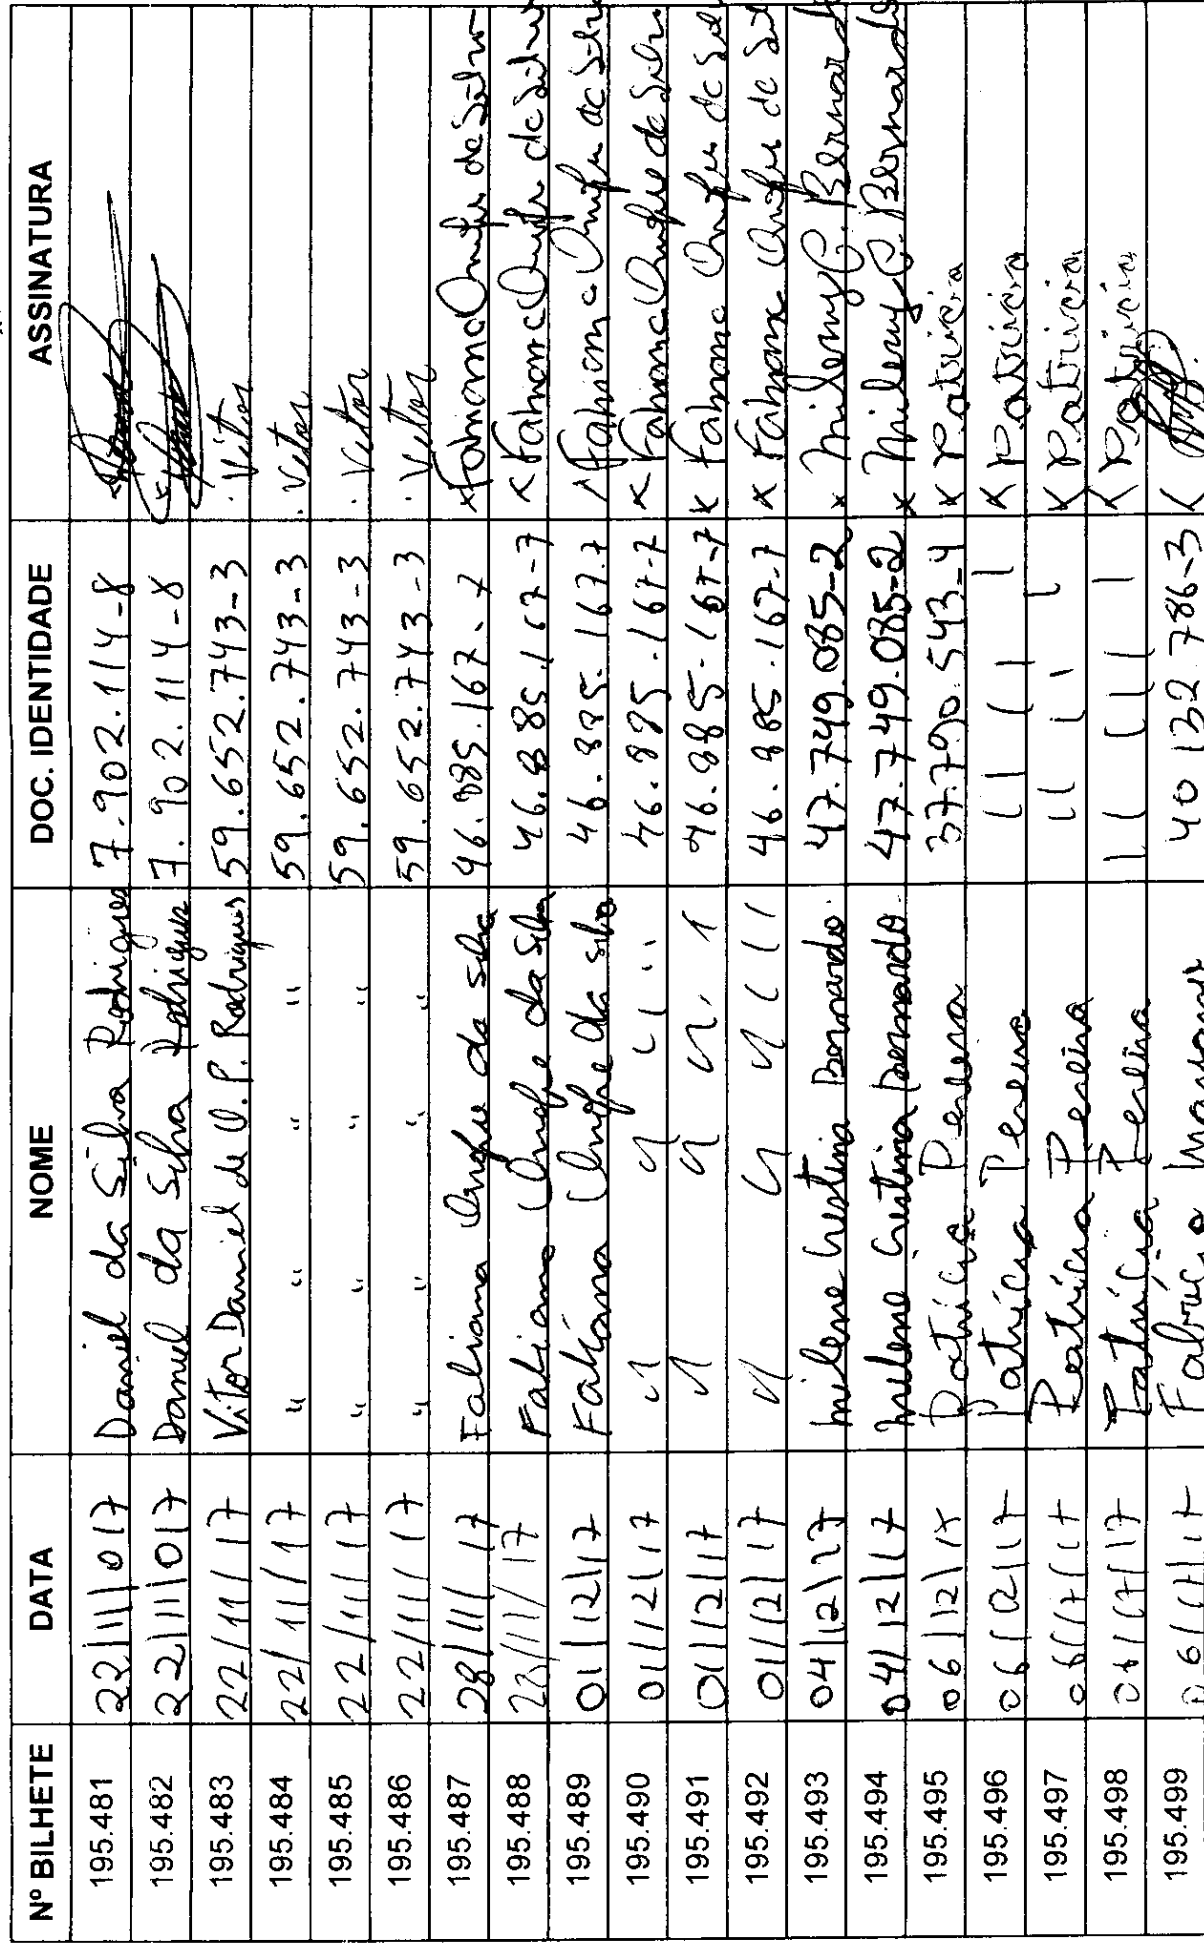 Nº BILHETE DATA NOME DOC. IDENTIDADE ASSINATURA
195.481 22/11/017 Daniel da Silva Rodrigues 7.902.114-8
195.482 22/11/017 Daniel da Silva Rodrigues 7.902.114-8
195.483 22/11/17 Vitor Daniel de O. P. Rodrigues 59.652.743-3 Vitor
195.484 22/11/17 " " " " 59.652.743-3 Vitor
195.485 22/11/17 " " " " 59.652.743-3 Vitor
195.486 22/11/17 " " " " 59.652.743-3 Vitor
195.487 28/11/17 Fabiana Onofre da Silva 46.885.167-7 x Fabiana Onofre da Silva
195.488 28/11/17 Fabiana Onofre da Silva 46.885.167-7 x Fabiana Onofre da Silva
195.489 01/12/17 Fabiana Onofre da Silva 46.885.167.7 x Fabiana Onofre da Silva
195.490 01/12/17 " " " " 46.885.167-7 x Fabiana Onofre da Silva
195.491 01/12/17 " " " " 46.885.167-7 x Fabiana Onofre da Sil
195.492 01/12/17 " " " " 46.885.167-7 x Fabiana Onofre da Sil
195.493 04/12/17 Milene Cristina Bernardo 47.749.085-2 x Mileny C. Bernardo
195.494 04/12/17 Milene Cristina Bernardo 47.749.085-2 x Mileny C. Bernardo
195.495 06/12/17 Patricia Pereira 37.790.543-4 x Patricia
195.496 06/12/17 Patrícia Pereira " " " x Patricia
195.497 06/17/17 Patrícia Pereira " " " x Patricia
195.498 06/17/17 Patrícia Pereira " " " x Patricia
195.499 06/17/17 Fabrício 40 132 786-3 x